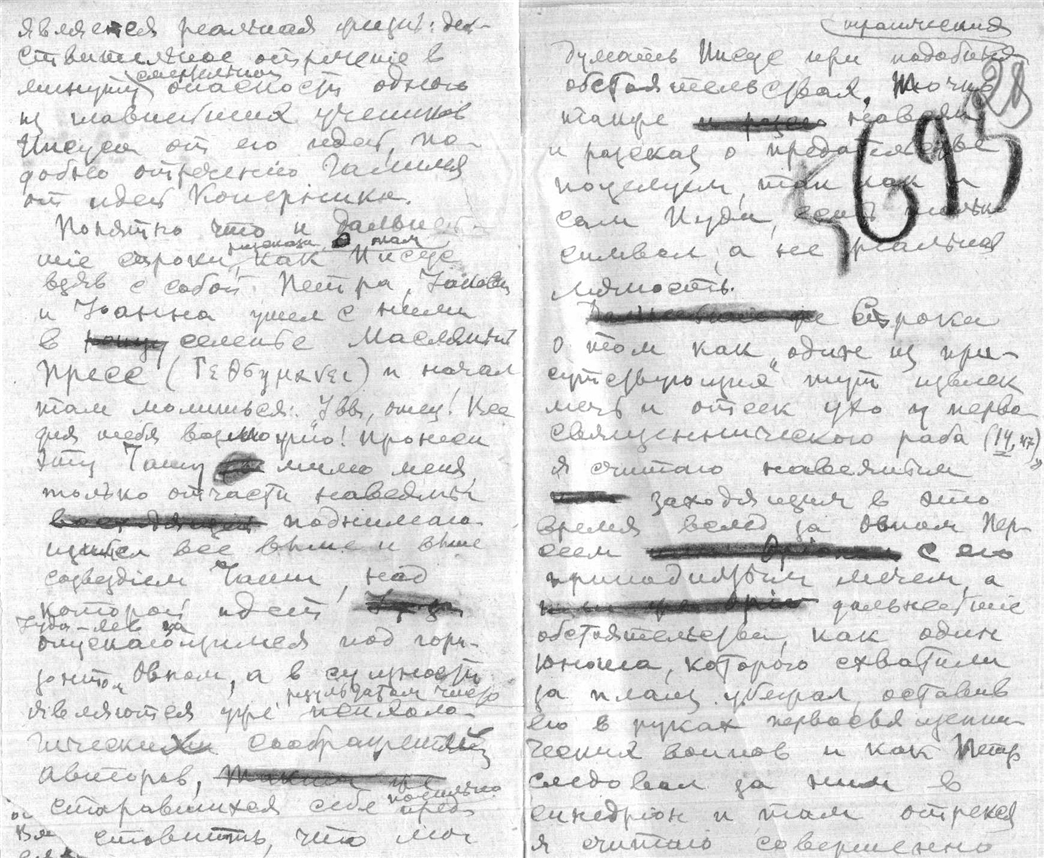 является реальный факт: дей-
ствительное отречение в
минуту смертельной опасности одного
из главнейших учеников
Иисуса от его идей, по-
добно отречению Галилея
от идей Коперника.
Понятно что и дальней-
шие строки рассказа, о том как Иисус
взяв с собой Петра, Иакова
и Иоанна ушел с ними
в селенье Масляный
Пресс (Γεθσημανεί) и начал
там молиться: Увы, отец! Все
для тебя возможно! Пронеси
эту Чашу мимо меня
только отчасти навеяны
поднимаю-
щимся все выше и выше
созвездіем Чаши, над
которой идет
Иуда-лев за
опускающимся под гори-
зонтом Овном, а в сущности
являются уже результатом чисто психоло-
гических соображений
авторов,
старавшихся себе посильно пред-
ставить, что мог
трагических
думать Иисус при подобных
обстоятельствах. Точно
также навеян
и рассказ о предательстве
поцелуем, так как и
сам Иуда, есть только
символ, а не реальная
личность.
Строки
о том как „один из при-
сутствующих" тут извлек
мечь и отсек ухо у перво-
священнического раба (14,47),
я считаю навеянным
заходящим в это
время вслед за Овном Пер-
сеем с его
приподнятым мечем, а
дальнейшие
обстоятельства, как один
юноша, которого схватили
за плащ убежал, оставив
его в руках первосвященни-
ческих воинов и как Петр
следовал за ним в
синедрион и там отрекся
я считаю совершенно
28
693